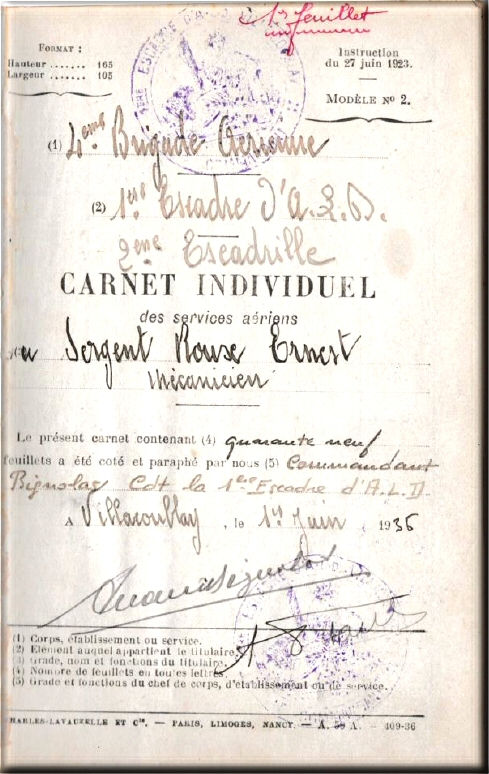 1er feuillet
FORMAT :
Hauteur ....... 165
Largeur ...... 105
Instruction
du 27 juin 1923.
MODÈLE No 2.
(1) 4ème Brigade Aerienne
(2) 1ère Escadre d'A.L.D.
2ème Escadrille
CARNET INDIVIDUEL
des services aériens
Sergent Roux Ernest
Mécanicien
Le présent carnet contenant (4) quarante neuf
feuillets a été coté et paraphé par nous (5) Commandant
Cdt la 1ère Escadre d'A.L.D.
A Villacoublay , le 1er Juin 1936
(1) Corps, établissement ou service.
(2) Elément auquel appartient le titulaire.
(3) Grade, nom et fonctions du titulaire.
(4) Nombre de feuillets en toutes lettres.
(5) Grade et fonctions du chef de corps, d'établissement ou de service.
CHARLES-LAVAUZELLE ET Cie. — PARIS, LIMOGES, NANCY. — A. 59 A. — 409-36